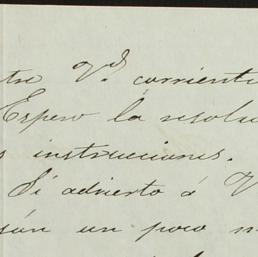 tre Vd. corriente
Espero la resolu
s instrucciones.
Si advierto á V
sán un poco m